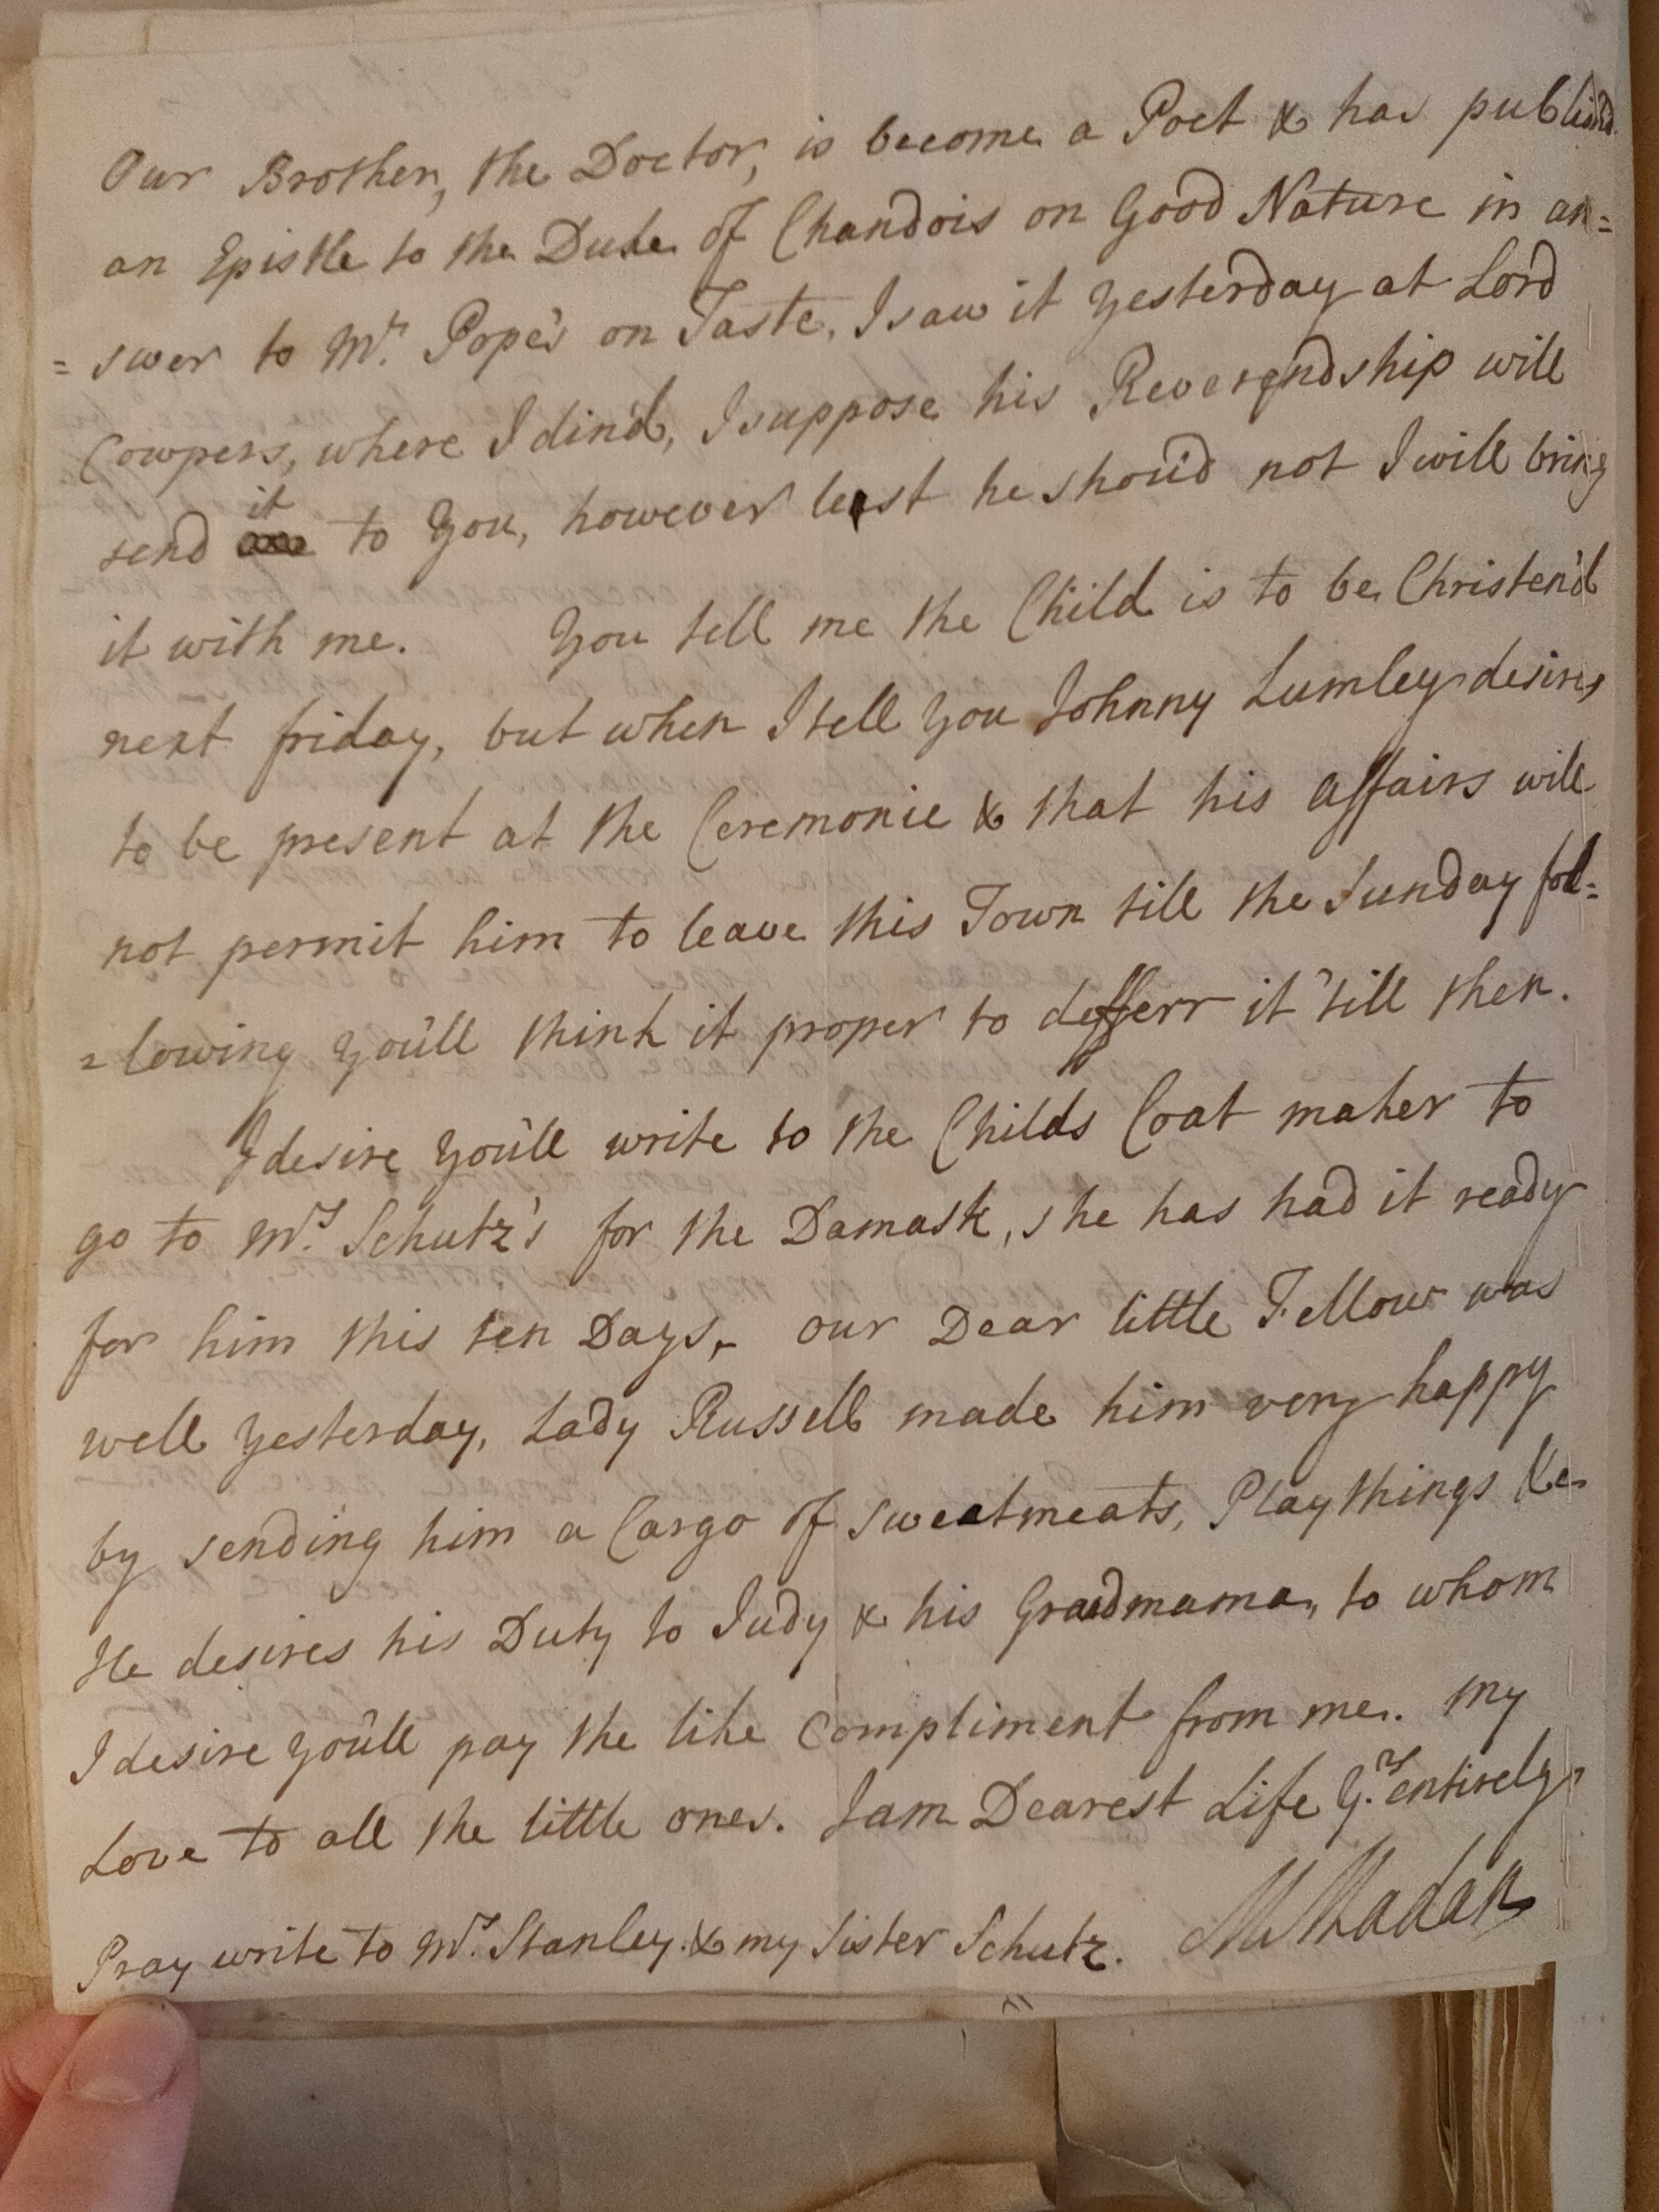 Our Brother, the Doctor, is become a Poet & has publish'd
an Epistle to the Duke of Chandois on Good Nature in an=
=swer to Mr. Pope's on Taste, I saw it yesterday at Lord
Cowpers, where I din'd, I suppose his Reverendship will
send it to You, however least he shou'd not I will bring
it with me. You tell me the Child is to be Christen'd
next friday, but when I tell You Johnny Lumley desires
to be present at the Ceremonie & that his affairs will
not permit him to leave this Town till the Sunday fol=
=lowing You'll think it proper to defferr it 'till then.
I desire You'll write to the Childs Coat maker to
go to Mrs. Schutz's for the Damask, she has had it ready
for him this ten Days, our Dear little Fellow was
well yesterday, Lady Russell made him very happy
by sending him a Cargo of sweatmeats, Playthings &c.
He desires his Duty to Judy & his Grandmama, to whom
I desire You'll pay the like Compliment from me. My
Love to all the little ones. I am Dearest Life Yrs. entirely
M Madan
Pray write to Mrs. Stanley. & my Sister Schutz.